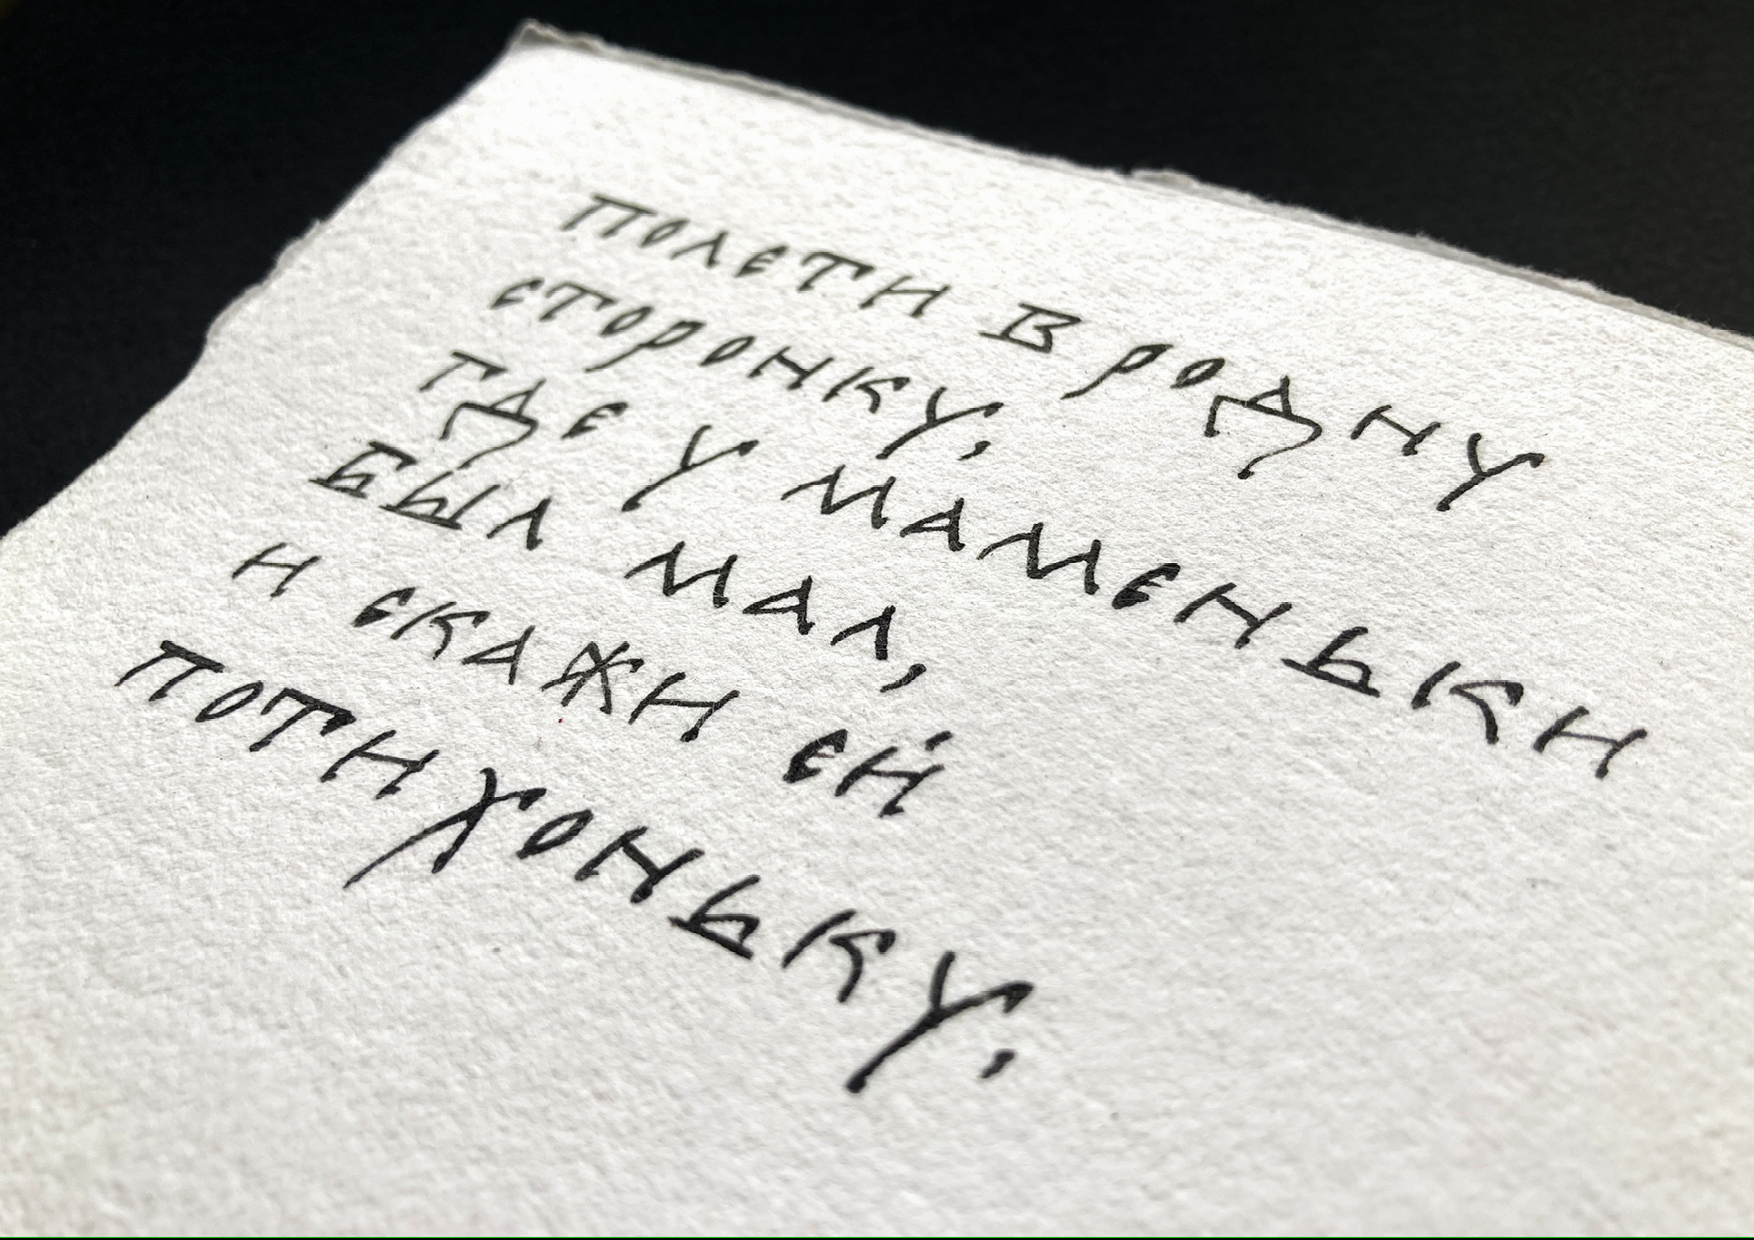 полети в родну
сторонку,
где у маменьки
был мал,
и скажи ей
потихоньку,